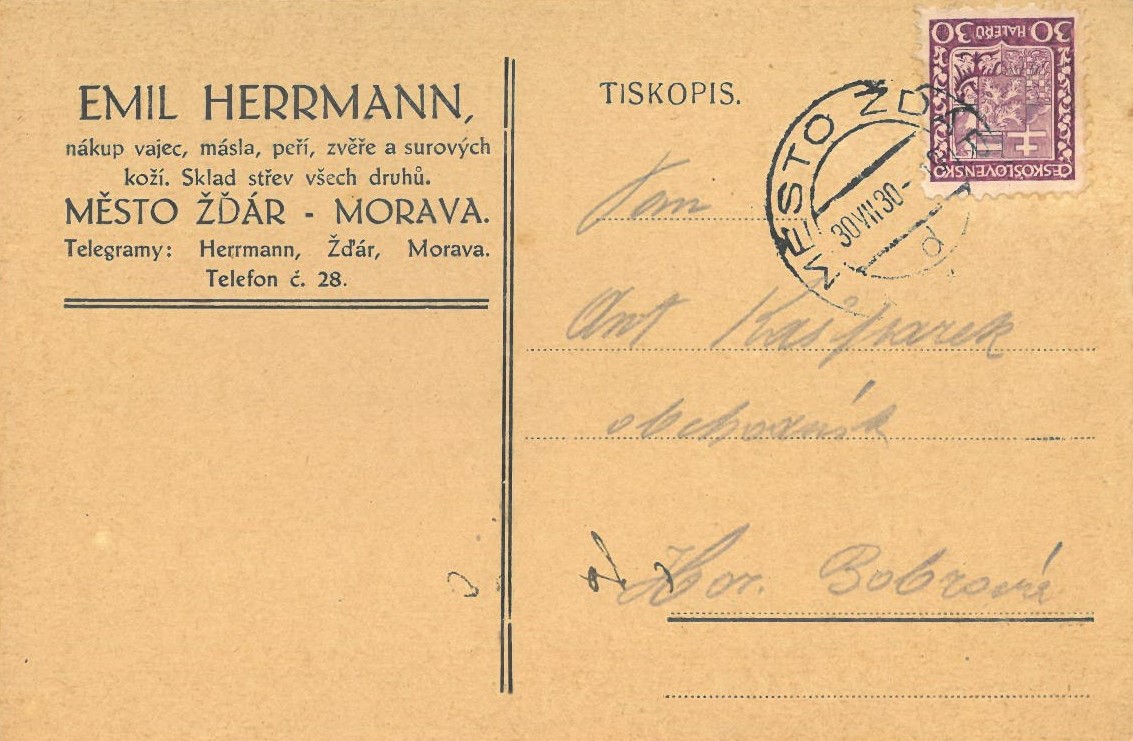 EMIL HERRMANN,
nákup vajec, másla, peří, zvěře a surových
koží. Sklad střev všech druhů.
MĚSTO ŽĎÁR - MORAVA.
Telegramy: Herrmann, Žďár, Morava.
Telefon č. 28.
TISKOPIS.
30 HALÉŘŮ 30
ČESKOSLOVENSKO
MĚSTO ŽĎ
30 VII 30
d
Pan
Ant Kašparek
obchodník
Hor. Bobrová